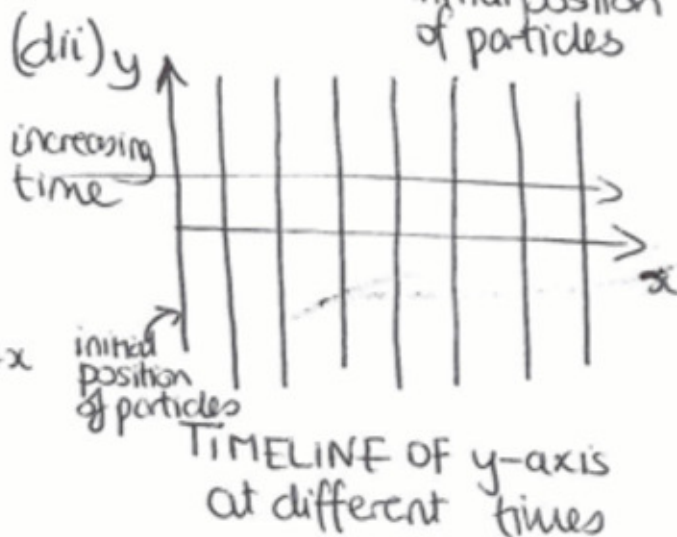 initial position
of particles
(dii) y
increasing
time
x
x
initial
position
of particles
TIMELINE OF y-axis
at different times